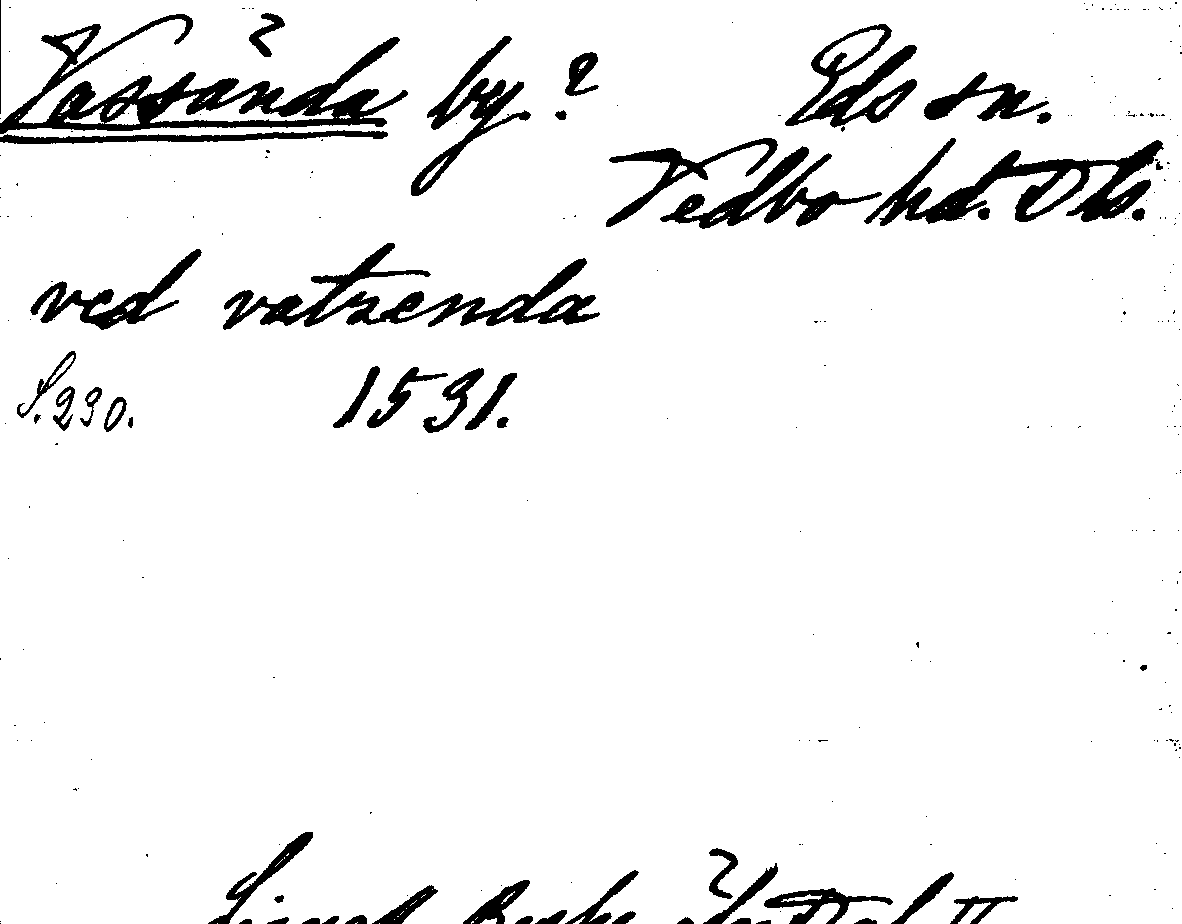 Vassända by.? Eds sn.
Vedbo hd. Dls.
ved vatzenda
S.230. 1531.